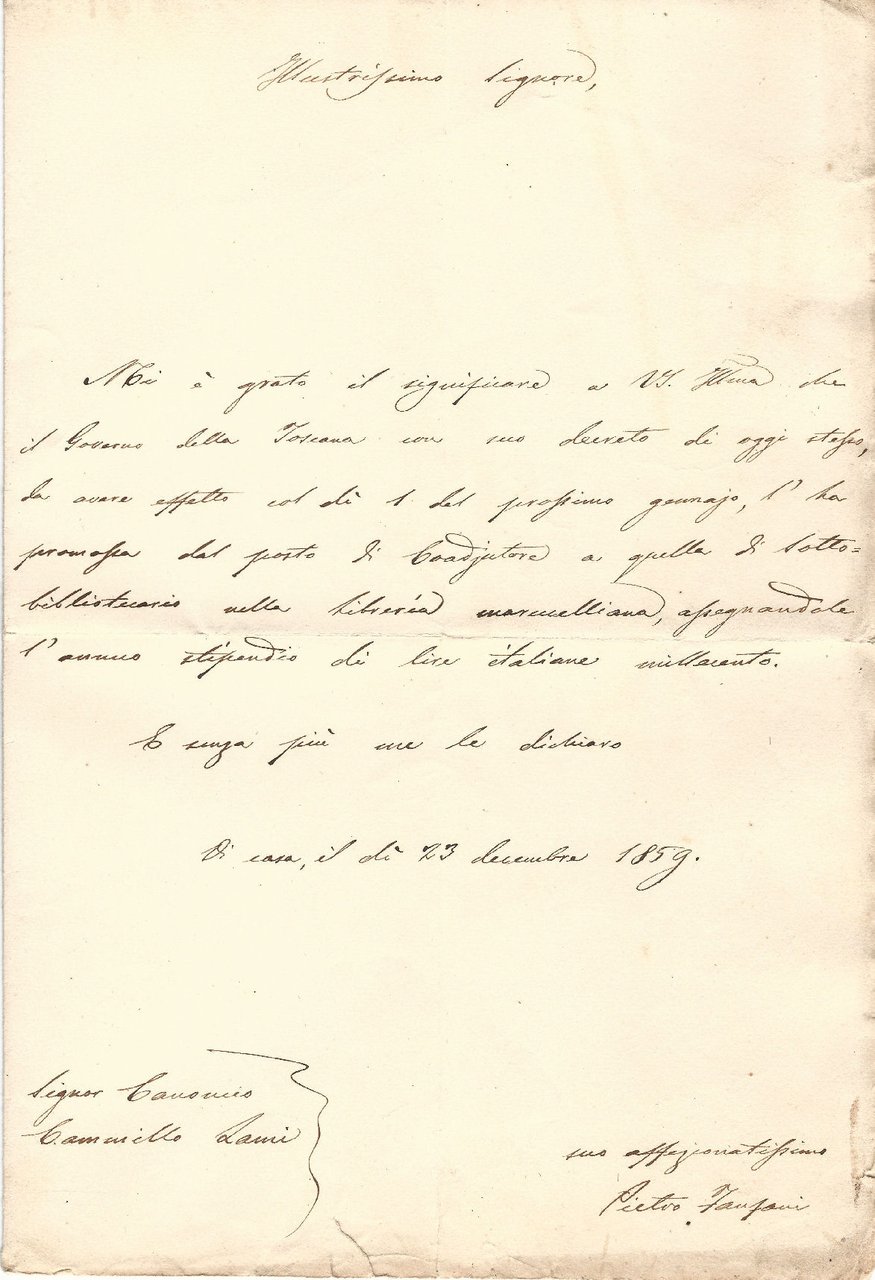 Illustrissimo Signore,
Mi è grato il significare a VS. Illma che
il Governo della Toscana con suo decreto di oggi stesso,
da avere effetto col dì 1 del prossimo gennajo, l' ha
promossa dal posto di Coadjutore a quello di Sotto=
bibliotecario nella Libreria marucelliana, assegnandole
l' annuo stipendio di lire italiane millecento.
E senza più me le dichiaro
Di casa, il dì 23 decembre 1859.
Signor Canonico
Cammillo Lami
suo affezionatissimo
Pietro Fanfani